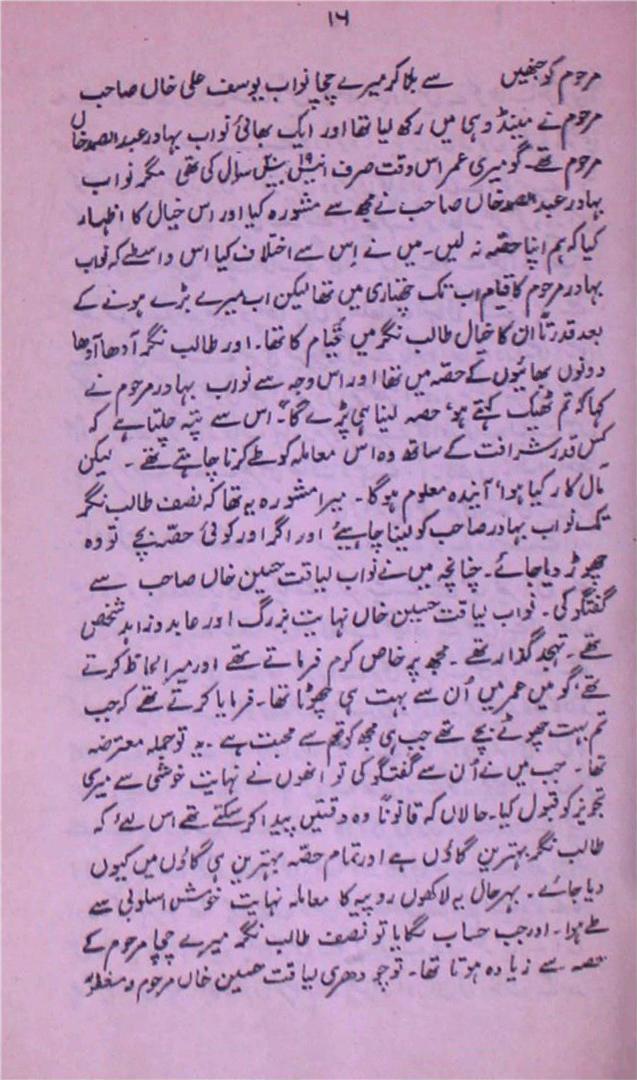 ۱۶
مرحوم کو جنھیں سے بلا کر میرے چچا نواب یوسف علی خاں صاحب
مرحوم نے مینڈو ہی میں رکھ لیا تھا اور ایک بھائی نواب بہادر عبدالصمد خاں
مرحوم تھے۔ گو میری عمر اس وقت صرف انیس ۱۹ بیس سال کی تھی مگر نواب
بہادر عبدالصمد خاں صاحب نے مجھ سے مشورہ کیا اور اس خیال کا اظہار
کیا کہ ہم اپنا حصّہ نہ لیں۔ میں نے اِس سے اختلاف کیا اس واسطے کہ نواب
بہادر مرحوم کا قیام اب تک چھتاری میں تھا لیکن اب میرے بڑے ہونے کے
بعد قدرتاً ان کا خیال طالب نگر میں قیام کا تھا۔ اور طالب نگر آدھا آدھا
دونوں بھائیوں کے حصّہ میں تھا اور اس وجہ سے نواب بہادر مرحوم نے
کہا کہ تم ٹھیک کہتے ہو، حصہ لینا ہی پڑے گا۔“ اس سے پتہ چلتا ہے کہ
کس قدر شرافت کے ساتھ وہ اس معاملہ کو طے کرنا چاہتے تھے۔ لیکن
مآل کار کیا ہوا، آیندہ معلوم ہوگا۔ میرا مشورہ یہ تھا کہ نصف طالب نگر
تک نواب بہادر صاحب کو لینا چاہیئے اور اگر اور کوئی حصّہ بچے تو وہ
چھوڑ دیا جائے۔ چنانچہ میں نے نواب لیاقت حسین خاں صاحب سے
گفتگو کی۔ نواب لیاقت حسین خاں نہایت بزرگ اور عابد و زاہد شخص
تھے۔ تہجد گذار تھے۔ مجھ پر خاص کرم فرماتے تھے اور میرا لحاظ کرتے
تھے، گو میں عمر میں اُن سے بہت ہی چھوٹا تھا۔ فرمایا کرتے تھے کہ جب
تم بہت چھوٹے بچے تھے جب ہی مجھ کو تم سے محبت ہے۔ یہ تو جملہ معترضہ
تھا۔ جب میں نے اُن سے گفتگو کی تو انھوں نے نہایت خوشی سے میری
تجویز کو قبول کیا۔ حالاں کہ قانوناً وہ دقتیں پیدا کر سکتے تھے اس لیے کہ
طالب نگر بہترین گاؤں ہے اور تمام حصّہ بہترین ہی گاؤں میں کیوں
دیا جائے۔ بہرحال یہ لاکھوں روپیہ کا معاملہ نہایت خوش اسلوبی سے
طے ہوا۔ اور جب حساب لگایا تو نصف طالب نگر میرے چچا مرحوم کے
حصہ سے زیادہ ہوتا تھا۔ تو چودھری لیاقت حسین خاں مرحوم و مغفور